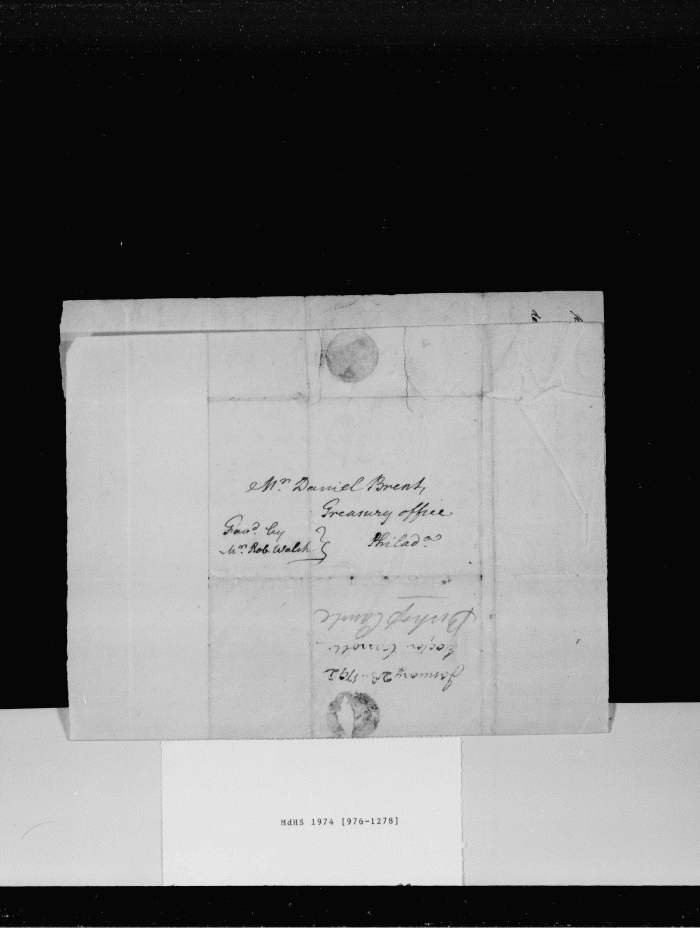 Mr. Daniel Brent,
Treasury office
Philada.
Favd. by
Mr. Rob. Walsh
January 1792
Carroll
Bishop
MdHS 1974 [976-1278]